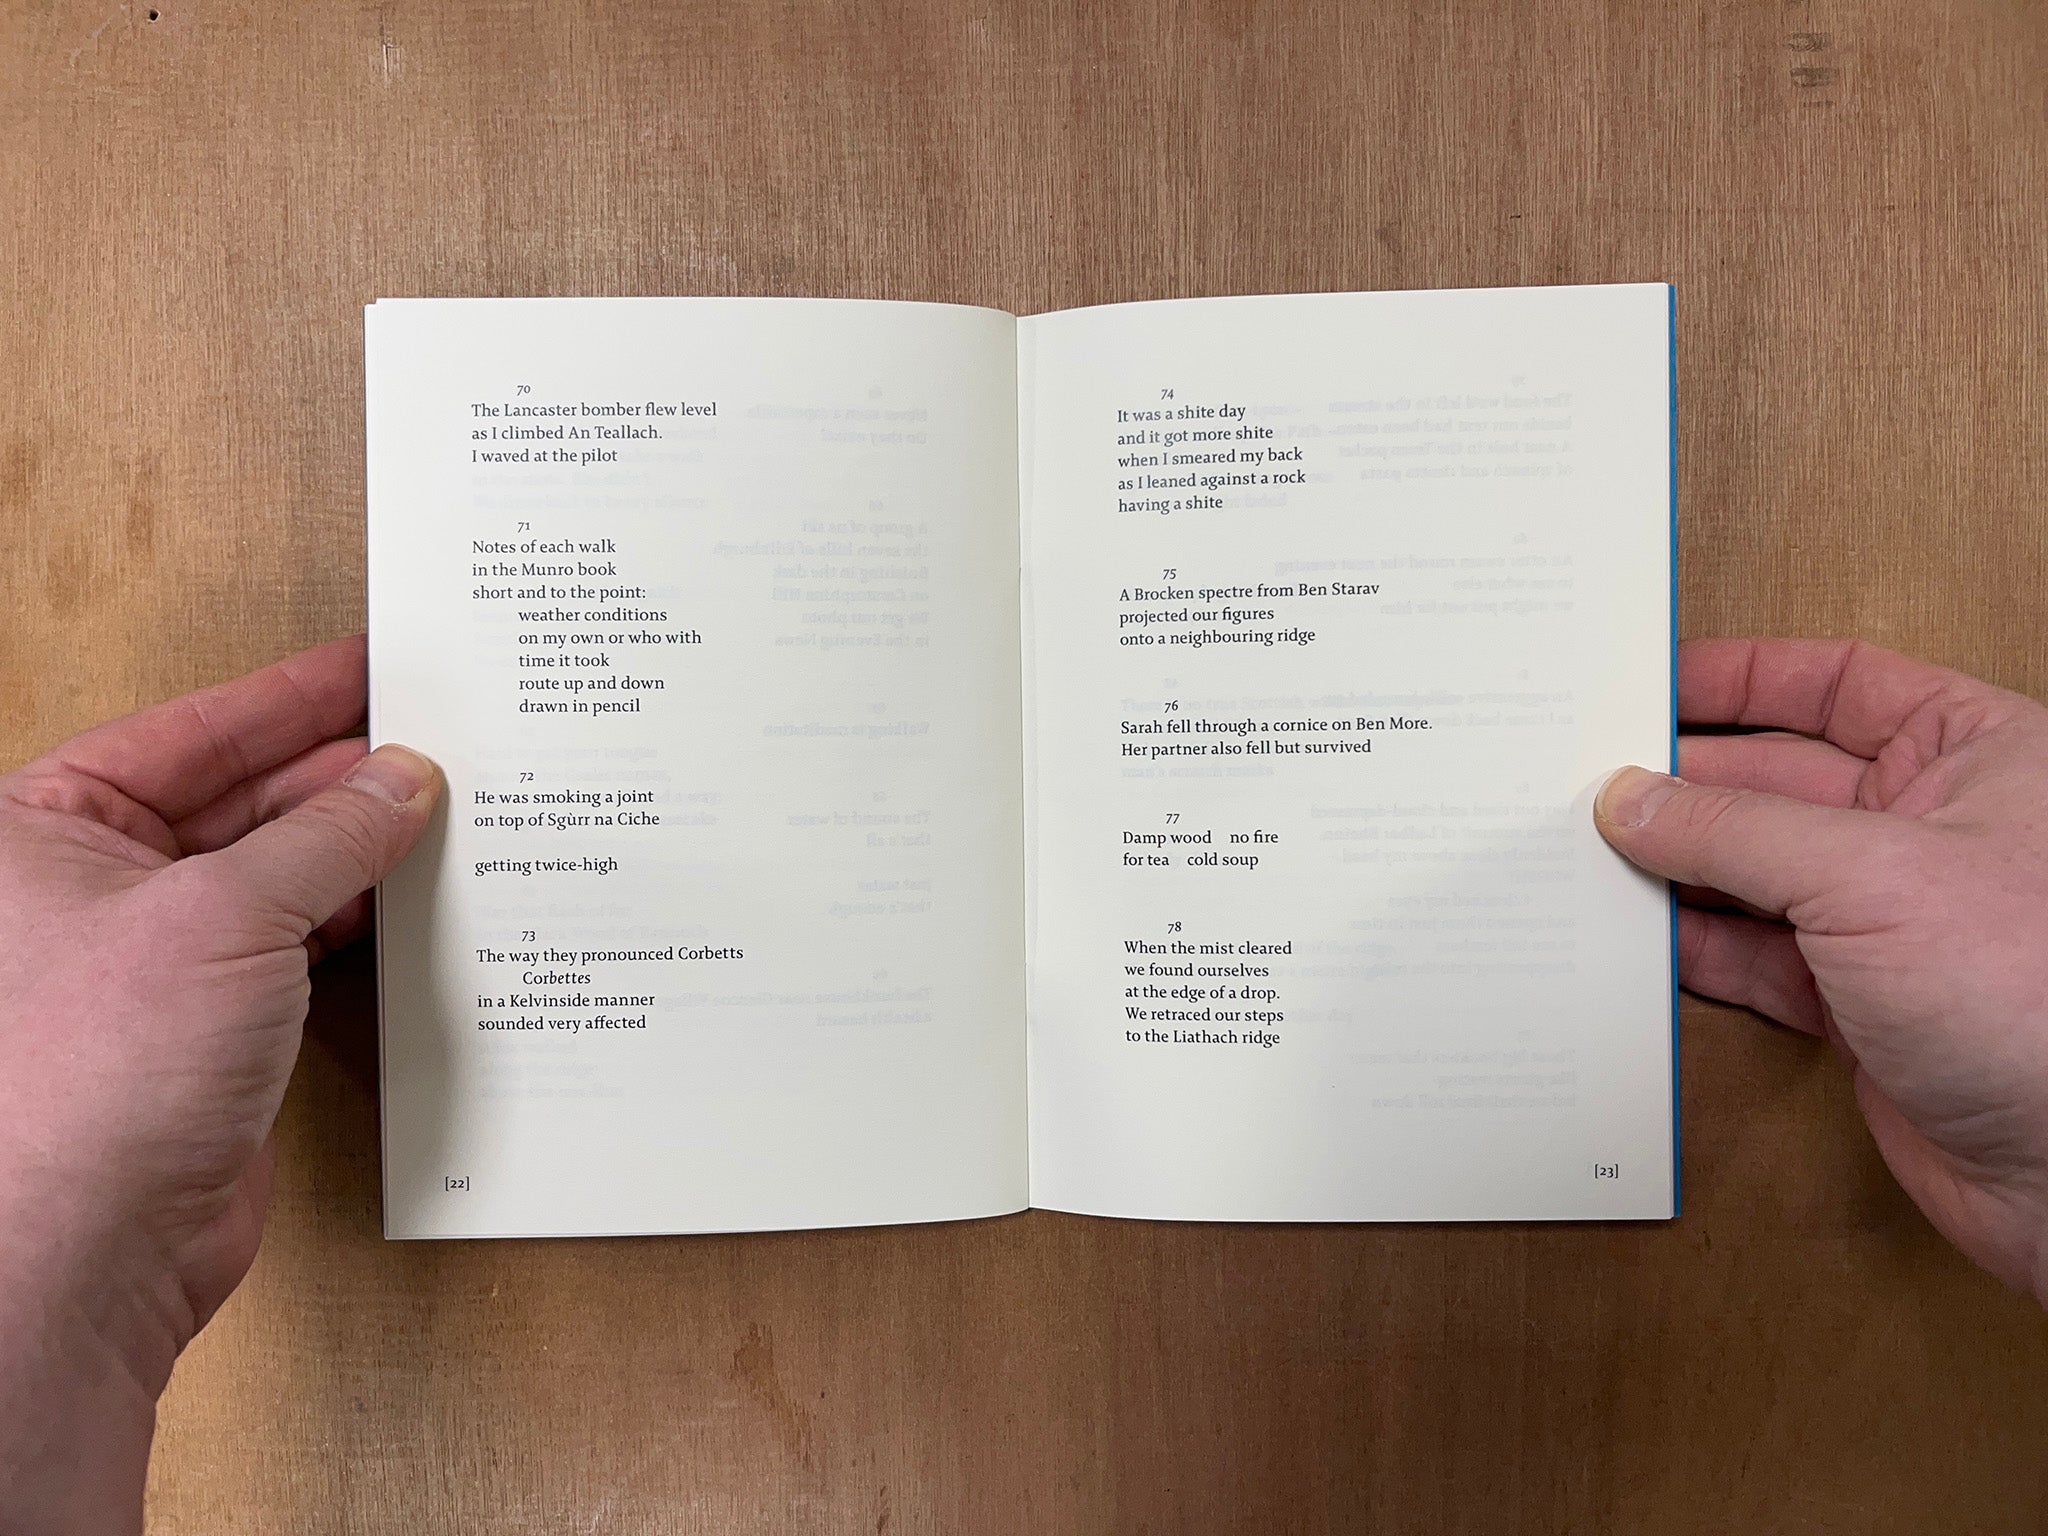 70
The Lancaster bomber flew level
as I climbed An Teallach.
I waved at the pilot
71
Notes of each walk
in the Munro book
short and to the point:
weather conditions
on my own or who with
time it took
route up and down
drawn in pencil
72
He was smoking a joint
on top of Sgùrr na Ciche
getting twice-high
73
The way they pronounced Corbetts
Corbettes
in a Kelvinside manner
sounded very affected
[22]
74
It was a shite day
and it got more shite
when I smeared my back
as I leaned against a rock
having a shite
75
A Brocken spectre from Ben Starav
projected our figures
onto a neighbouring ridge
76
Sarah fell through a cornice on Ben More.
Her partner also fell but survived
77
Damp wood no fire
for tea cold soup
78
When the mist cleared
we found ourselves
at the edge of a drop.
We retraced our steps
to the Liathach ridge
[23]